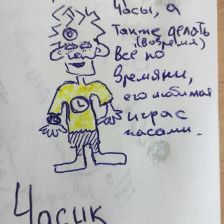 Часы, а
также делать
(вовремя)
Всё по
времяни,
его любимая
играс
часами.
Часик